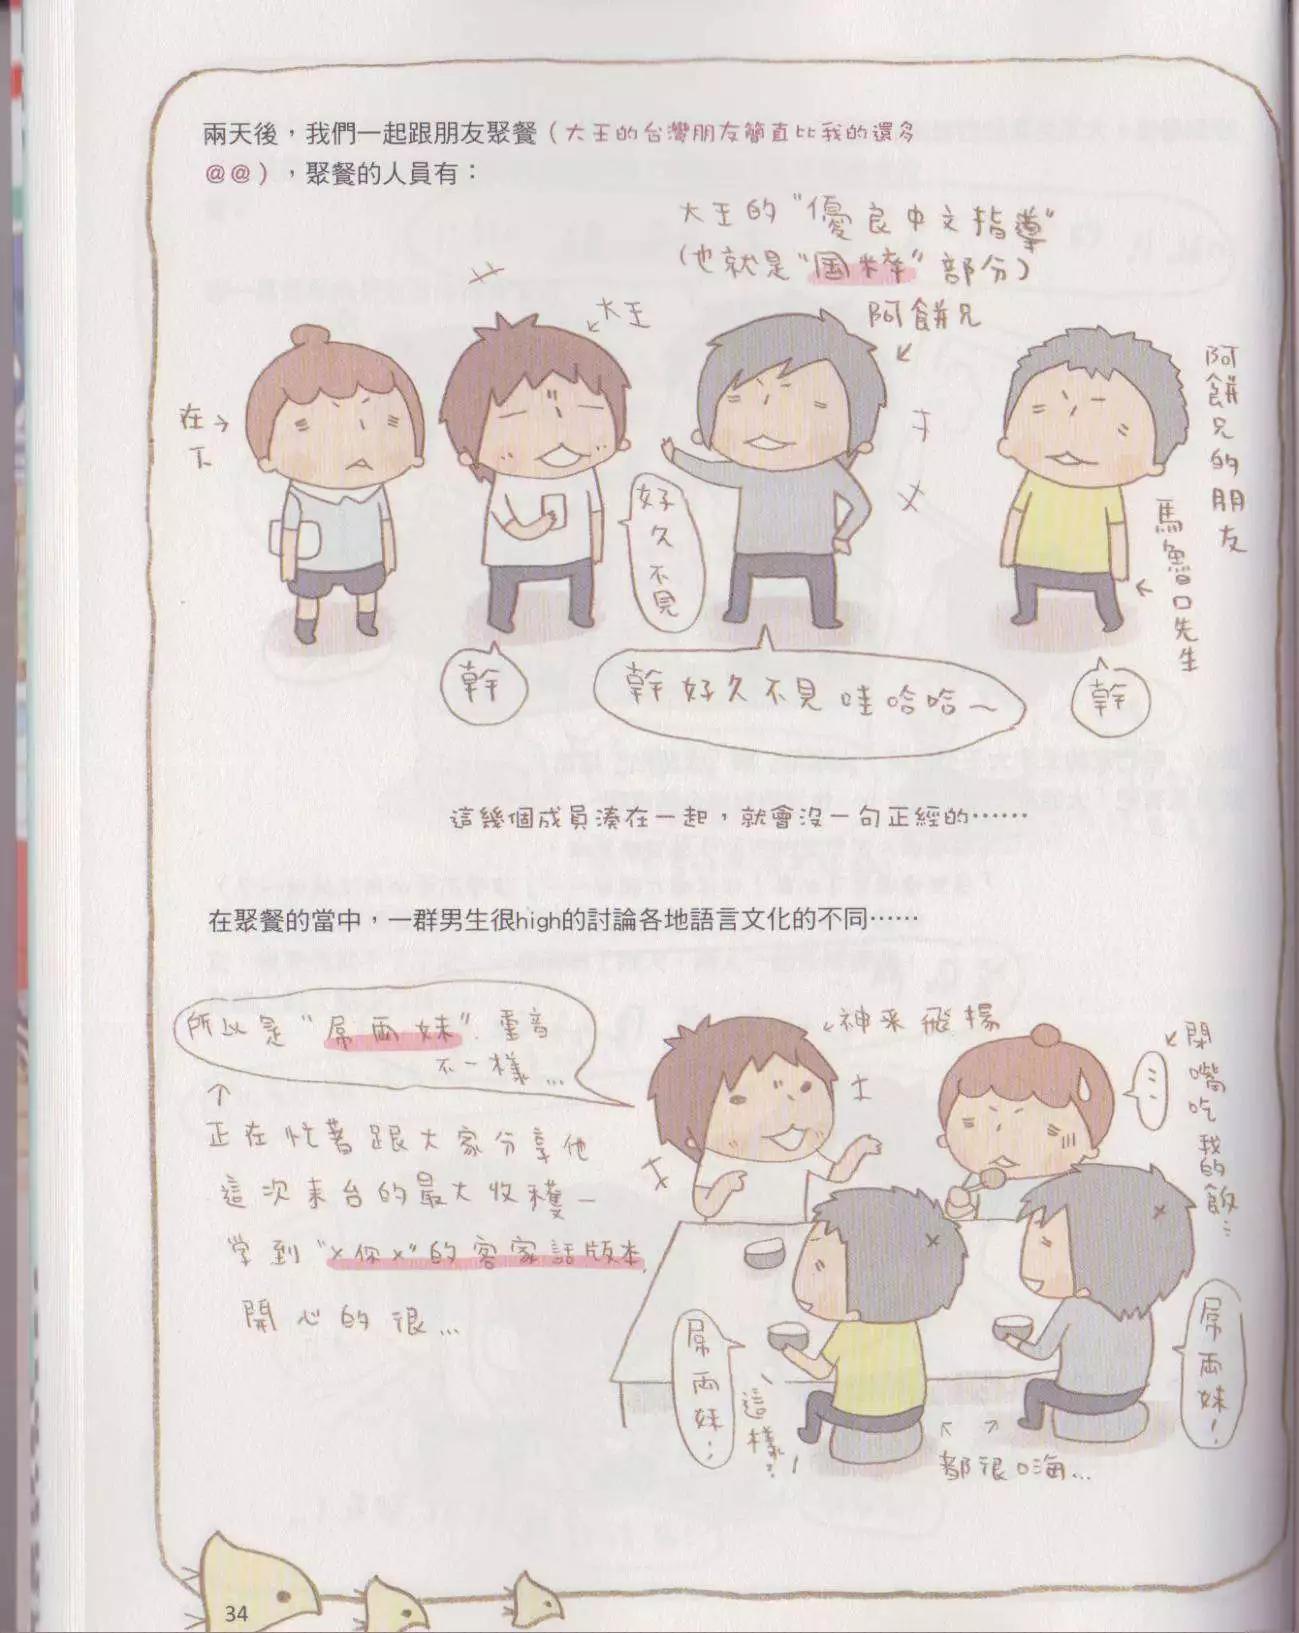 兩天後，我們一起跟朋友聚餐（大王的台灣朋友簡直比我的還多
@@），聚餐的人員有：
大王的"優良中文指導"
(也就是"國粹"部分)
阿餅兄
大王
在下
阿餅兄的朋友
馬魯口先生
好久不見
幹
幹好久不見哇哈哈~
幹
這幾個成員湊在一起，就會沒一句正經的……
在聚餐的當中，一群男生很high的討論各地語言文化的不同……
所以是"屌兩妹".重音
不一樣...
正在忙著跟大家分享他
這次來台的最大收穫—
學到"x你x"的客家話版本,
開心的很...
神采飛揚
閉嘴吃我的飯...
屌兩妹...
這樣?!
屌兩妹!
都很嗨...
34